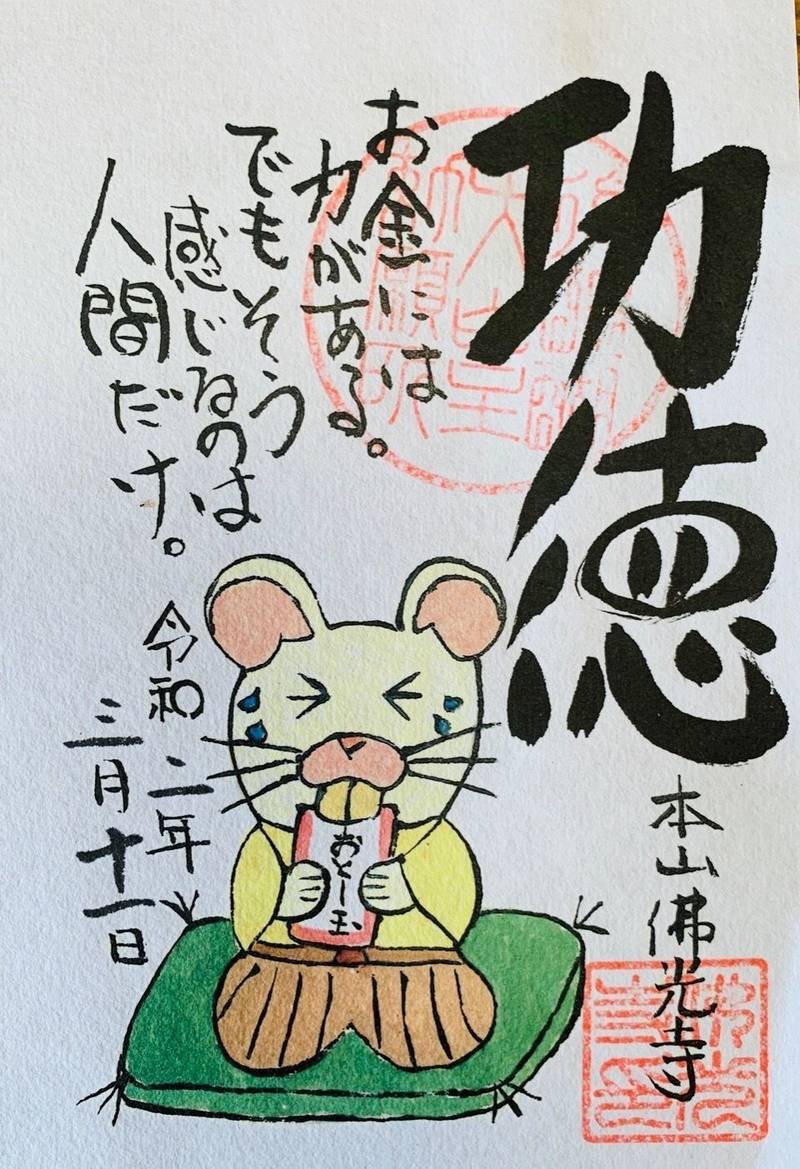 功徳
本山佛光寺
お金には
力がある。
でもそう
感じるのは
人間だけ。
令和二年
三月十一日
おとし玉